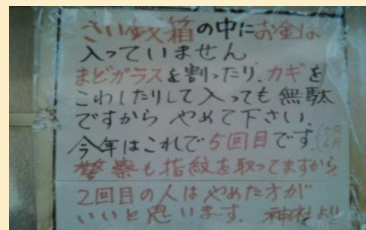 さいせん箱の中にお金は
入っていません
まどガラスを割ったり、カギを
こわしたりして入っても無駄
ですから やめて下さい。
今年はこれで5回目です。
警察も指紋を取ってますから
2回目の人はやめた方が
いいと思います。 神社より